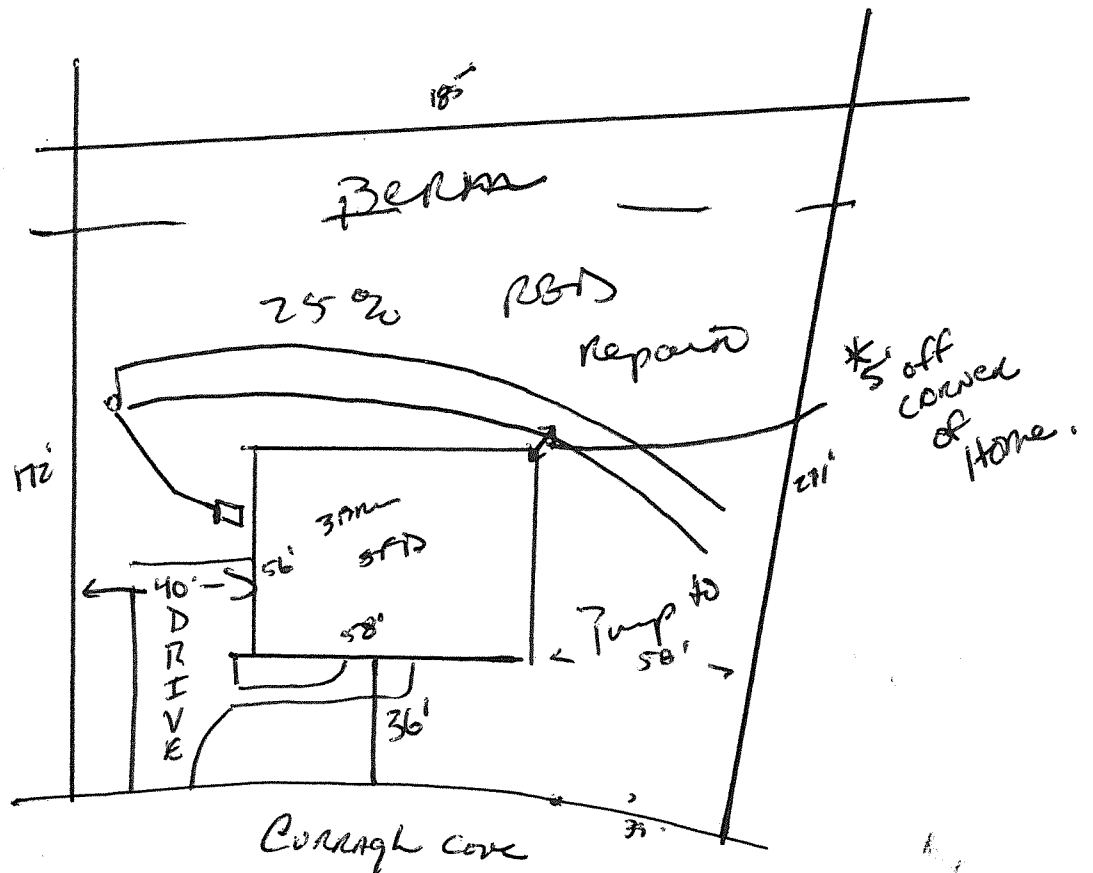 185'
BERM
25% RED
Repair
*5' off
CORNER
of
Home.
172'
211'
3BRM
SFD
56'
40'
DRIVE
58'
Pump to
50'
36'
Curragh Cove